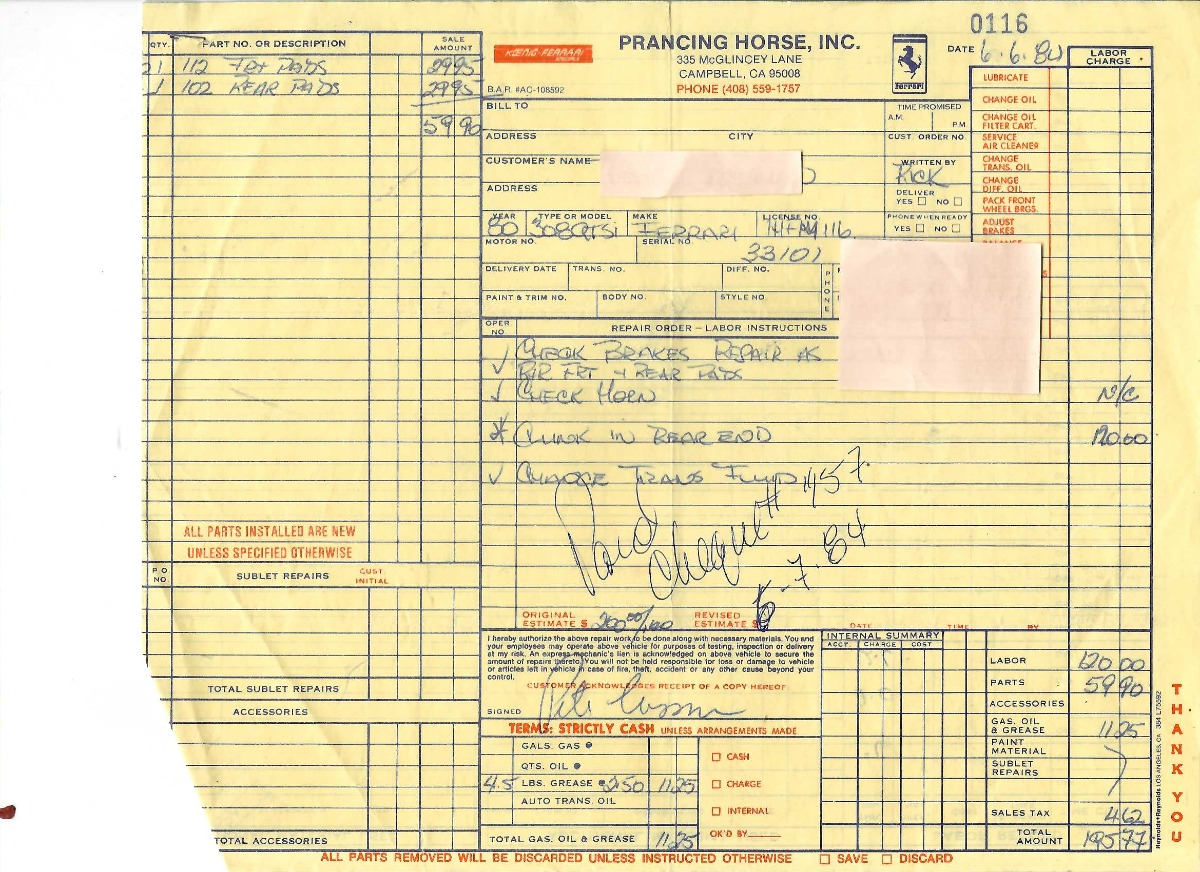 0116
KŒNIG-FERRARI
SPECIALS
PRANCING HORSE, INC.
335 McGLINCEY LANE
CAMPBELL, CA 95008
PHONE (408) 559-1757
B.A.R. #AC-108592
Ferrari
DATE 6.6.84
LABOR CHARGE
QTY. PART NO. OR DESCRIPTION SALE AMOUNT
1 112 FRT PADS 2995
1 102 REAR PADS 2995
59 90
BILL TO
ADDRESS CITY
CUSTOMER'S NAME
ADDRESS
TIME PROMISED
A.M. P.M.
CUST. ORDER NO.
WRITTEN BY
RICK
DELIVER
YES ☐ NO ☐
PHONE WHEN READY
YES ☐ NO ☐
LUBRICATE
CHANGE OIL
CHANGE OIL FILTER CART.
SERVICE AIR CLEANER
CHANGE TRANS. OIL
CHANGE DIFF. OIL
PACK FRONT WHEEL BRGS.
ADJUST BRAKES
YEAR TYPE OR MODEL MAKE LICENSE NO.
80 308GTSI FERRARI 1HFM116
MOTOR NO. SERIAL NO.
33101
DELIVERY DATE TRANS. NO. DIFF. NO. PHONE
PAINT & TRIM NO. BODY NO. STYLE NO.
OPER NO. REPAIR ORDER – LABOR INSTRUCTIONS
✓ CHECK BRAKES REPAIR AS
✓ R/R FRT + REAR PADS
✓ CHECK HORN N/C
* CLUNK IN REAR END 120.00
✓ CHANGE TRANS FLUID
Paid
Cheque # 1457
6-7.84
ALL PARTS INSTALLED ARE NEW
UNLESS SPECIFIED OTHERWISE
P O NO. SUBLET REPAIRS CUST. INITIAL
TOTAL SUBLET REPAIRS
ACCESSORIES
TOTAL ACCESSORIES
ORIGINAL ESTIMATE $ 200.00 REVISED ESTIMATE $ DATE TIME BY
I hereby authorize the above repair work to be done along with necessary materials. You and
your employees may operate above vehicle for purposes of testing, inspection or delivery
at my risk. An express mechanic's lien is acknowledged on above vehicle to secure the
amount of repairs thereto. You will not be held responsible for loss or damage to vehicle
or articles left in vehicle in case of fire, theft, accident or any other cause beyond your
control.
CUSTOMER ACKNOWLEDGES RECEIPT OF A COPY HEREOF.
SIGNED
TERMS: STRICTLY CASH UNLESS ARRANGEMENTS MADE
GALS. GAS @
QTS. OIL @
4.5 LBS. GREASE @ 2.50 11.25
AUTO TRANS. OIL
TOTAL GAS. OIL & GREASE 11.25
☐ CASH
☐ CHARGE
☐ INTERNAL
OK'D BY
INTERNAL SUMMARY
ACCT. CHARGE COST
LABOR 120 00
PARTS 59 90
ACCESSORIES
GAS. OIL & GREASE 11.25
PAINT MATERIAL
SUBLET REPAIRS
SALES TAX 4.62
TOTAL AMOUNT 195.77
THANK YOU
Reynolds+Reynolds LOS ANGELES, CA 384 L75592
ALL PARTS REMOVED WILL BE DISCARDED UNLESS INSTRUCTED OTHERWISE ☐ SAVE ☐ DISCARD